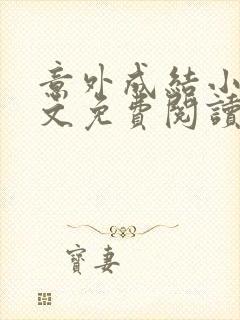 意外成結小
文免費閱讀
寶妻